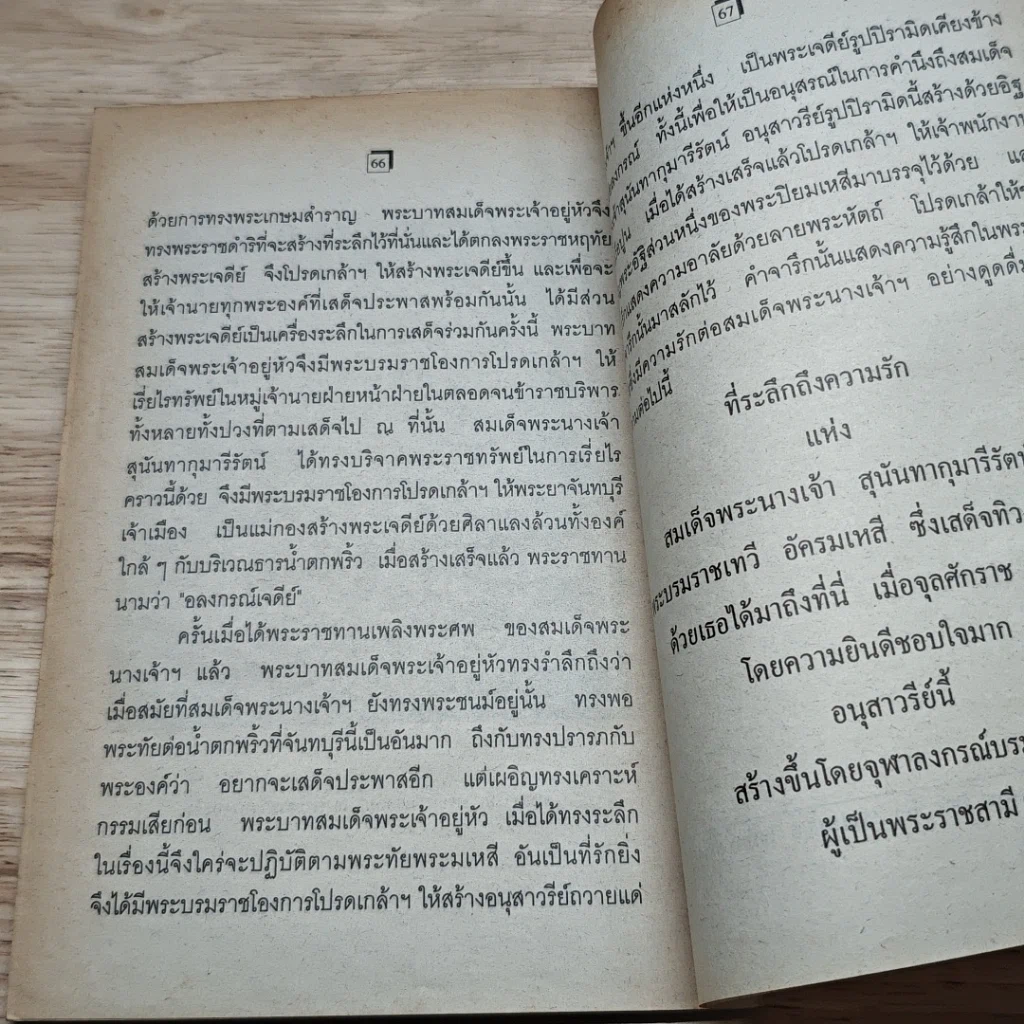 66
ด้วยการทรงพระเกษมสำราญ พระบาทสมเด็จพระเจ้าอยู่หัวจึง
ทรงพระราชดำริที่จะสร้างที่ระลึกไว้ที่นั่นและได้ตกลงพระราชหฤทัย
สร้างพระเจดีย์ จึงโปรดเกล้าฯ ให้สร้างพระเจดีย์ขึ้น และเพื่อจะ
ให้เจ้านายทุกพระองค์ที่เสด็จประพาสพร้อมกันนั้น ได้มีส่วน
สร้างพระเจดีย์เป็นเครื่องระลึกในการเสด็จร่วมกันครั้งนี้ พระบาท
สมเด็จพระเจ้าอยู่หัวจึงมีพระบรมราชโองการโปรดเกล้าฯ ให้
เรี่ยไรทรัพย์ในหมู่เจ้านายฝ่ายหน้าฝ่ายในตลอดจนข้าราชบริพาร
ทั้งหลายทั้งปวงที่ตามเสด็จไป ณ ที่นั้น สมเด็จพระนางเจ้า
สุนันทากุมารีรัตน์ ได้ทรงบริจาคพระราชทรัพย์ในการเรี่ยไร
คราวนี้ด้วย จึงมีพระบรมราชโองการโปรดเกล้าฯ ให้พระยาจันทบุรี
เจ้าเมือง เป็นแม่กองสร้างพระเจดีย์ด้วยศิลาแลงล้วนทั้งองค์
ใกล้ ๆ กับบริเวณธารน้ำตกพริ้ว เมื่อสร้างเสร็จแล้ว พระราชทาน
นามว่า "อลงกรณ์เจดีย์"
ครั้นเมื่อได้พระราชทานเพลิงพระศพ ของสมเด็จพระ
นางเจ้าฯ แล้ว พระบาทสมเด็จพระเจ้าอยู่หัวทรงรำลึกถึงว่า
เมื่อสมัยที่สมเด็จพระนางเจ้าฯ ยังทรงพระชนม์อยู่นั้น ทรงพอ
พระทัยต่อน้ำตกพริ้วที่จันทบุรีนี้เป็นอันมาก ถึงกับทรงปรารภกับ
พระองค์ว่า อยากจะเสด็จประพาสอีก แต่เผอิญทรงเคราะห์
กรรมเสียก่อน พระบาทสมเด็จพระเจ้าอยู่หัว เมื่อได้ทรงระลึก
ในเรื่องนี้จึงใคร่จะปฏิบัติตามพระทัยพระมเหสี อันเป็นที่รักยิ่ง
จึงได้มีพระบรมราชโองการโปรดเกล้าฯ ให้สร้างอนุสาวรีย์ถวายแด่
67
ขึ้นอีกแห่งหนึ่ง เป็นพระเจดีย์รูปปิรามิดเคียงข้าง
ทั้งนี้เพื่อให้เป็นอนุสรณ์ในการคำนึงถึงสมเด็จ
สุนันทากุมารีรัตน์ อนุสาวรีย์รูปปิรามิดนี้สร้างด้วยอิฐ
ปูน เมื่อได้สร้างเสร็จแล้วโปรดเกล้าฯ ให้เจ้าพนักงาน
พระอัฐิส่วนหนึ่งของพระปิยมเหสีมาบรรจุไว้ด้วย
แสดงความอาลัยด้วยลายพระหัตถ์ โปรดเกล้าให้
นั้นมาสลักไว้ คำจารึกนั้นแสดงความรู้สึกในพระ
มีความรักต่อสมเด็จพระนางเจ้าฯ อย่างดูดดื่ม
ต่อไปนี้
ที่ระลึกถึงความรัก
แห่ง
สมเด็จพระนางเจ้า สุนันทากุมารีรัตน์
พระบรมราชเทวี อัครมเหสี ซึ่งเสด็จทิว
ด้วยเธอได้มาถึงที่นี่ เมื่อจุลศักราช
โดยความยินดีชอบใจมาก
อนุสาวรีย์นี้
สร้างขึ้นโดยจุฬาลงกรณ์บรม
ผู้เป็นพระราชสามี